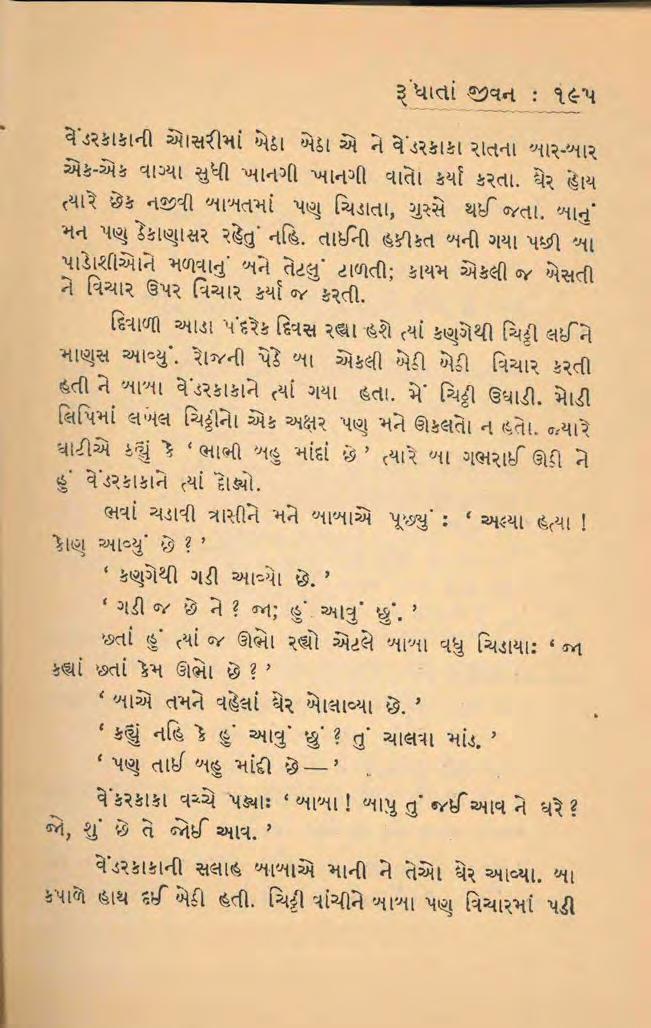 રૂંધાતાં જીવન : ૧૯૫
વેંડરકાકાની ઓસરીમાં બેઠા બેઠા એ ને વેંડરકાકા રાતના બાર-બાર
એક-એક વાગ્યા સુધી ખાનગી ખાનગી વાતો કર્યા કરતા. ઘેર હોય
ત્યારે છેક નજીવી બાબતમાં પણ ચિડાતા, ગુસ્સે થઈ જતા. બાનું
મન પણ ઠેકાણાસર રહેતું નહિ. તાઈની હકીકત બની ગયા પછી બા
પાડોશીઓને મળવાનું બને તેટલું ટાળતી; કાયમ એકલી જ બેસતી
ને વિચાર ઉપર વિચાર કર્યા જ કરતી.
દિવાળી આડા પંદરેક દિવસ રહ્યા હશે ત્યાં કણગેથી ચિઠ્ઠી લઈને
માણસ આવ્યું. રોજની પેઠે બા એકલી બેઠી બેઠી વિચાર કરતી
હતી ને બાબા વેંડરકાકાને ત્યાં ગયા હતા. મેં ચિઠ્ઠી ઉઘાડી. મોડી
લિપિમાં લખેલ ચિઠ્ઠીનો એક અક્ષર પણ મને ઊકલતો ન હતો. જ્યારે
ઘાટીએ કહ્યું કે ‘ ભાભી બહુ માંદાં છે ’ ત્યારે બા ગભરાઈ ઊઠી ને
હું વેંડરકાકાને ત્યાં દોડ્યો.
ભવાં ચડાવી ત્રાસીને મને બાબાએ પૂછ્યું : ‘ અલ્યા હત્યા !
કોણ આવ્યું છે ? ’
‘ કણગેથી ગડી આવ્યો છે. ’
‘ ગડી જ છે ને ? જા; હું આવું છું. ’
છતાં હું ત્યાં જ ઊભો રહ્યો એટલે બાબા વધુ ચિડાયા: ‘ જા
કહ્યાં છતાં કેમ ઊભો છે ? ’
‘ બાએ તમને વહેલાં ઘેર બોલાવ્યા છે. ’
‘ કહ્યું નહિ કે હું આવું છું ? તું ચાલવા માંડ. ’
‘ પણ તાઈ બહુ માંદી છે — ’
વેંકરકાકા વચ્ચે પડ્યા: ‘ બાબા ! બાપુ તું જઈ આવ ને ઘરે ?
જો, શું છે તે જોઈ આવ. ’
વેંડરકાકાની સલાહ બાબાએ માની ને તેઓ ઘેર આવ્યા. બા
કપાળે હાથ દઈ બેઠી હતી. ચિઠ્ઠી વાંચીને બાબા પણ વિચારમાં પડી